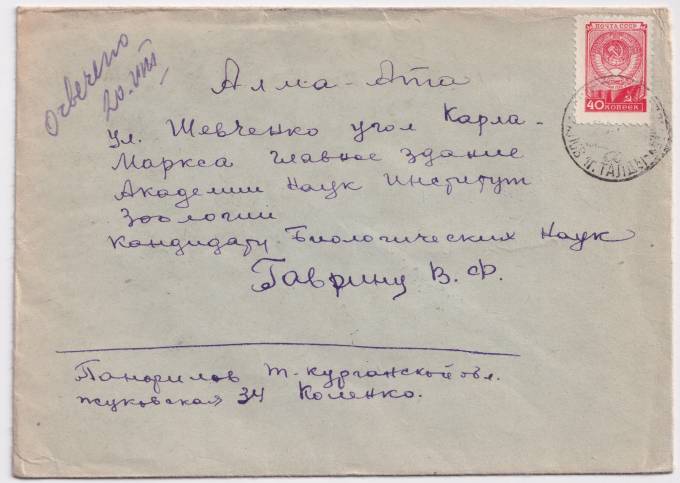 Отвечено
20.VIII
ПОЧТА СССР
40 КОПЕЕК
Алма-Ата
ул. Шевченко угол Карла-
Маркса главное здание
Академии Наук Институт
Зоологии
кандидату Биологических Наук
Гаврину В. Ф.
Панфилов Т-Курганской обл.
Жуковская 34 Коленко.